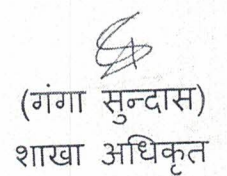 (गंगा सुन्दास)
शाखा अधिकृत